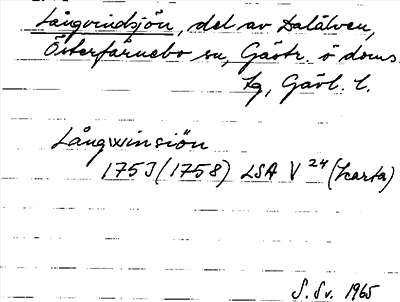 Långvindsjön, del av Dalälven,
Österfärnebo sn, Gästr. ö doms.
tg, Gävl. l.
Långwinsiön
1753 (1758) LSA V 24 (karta)
S. Sv. 1965